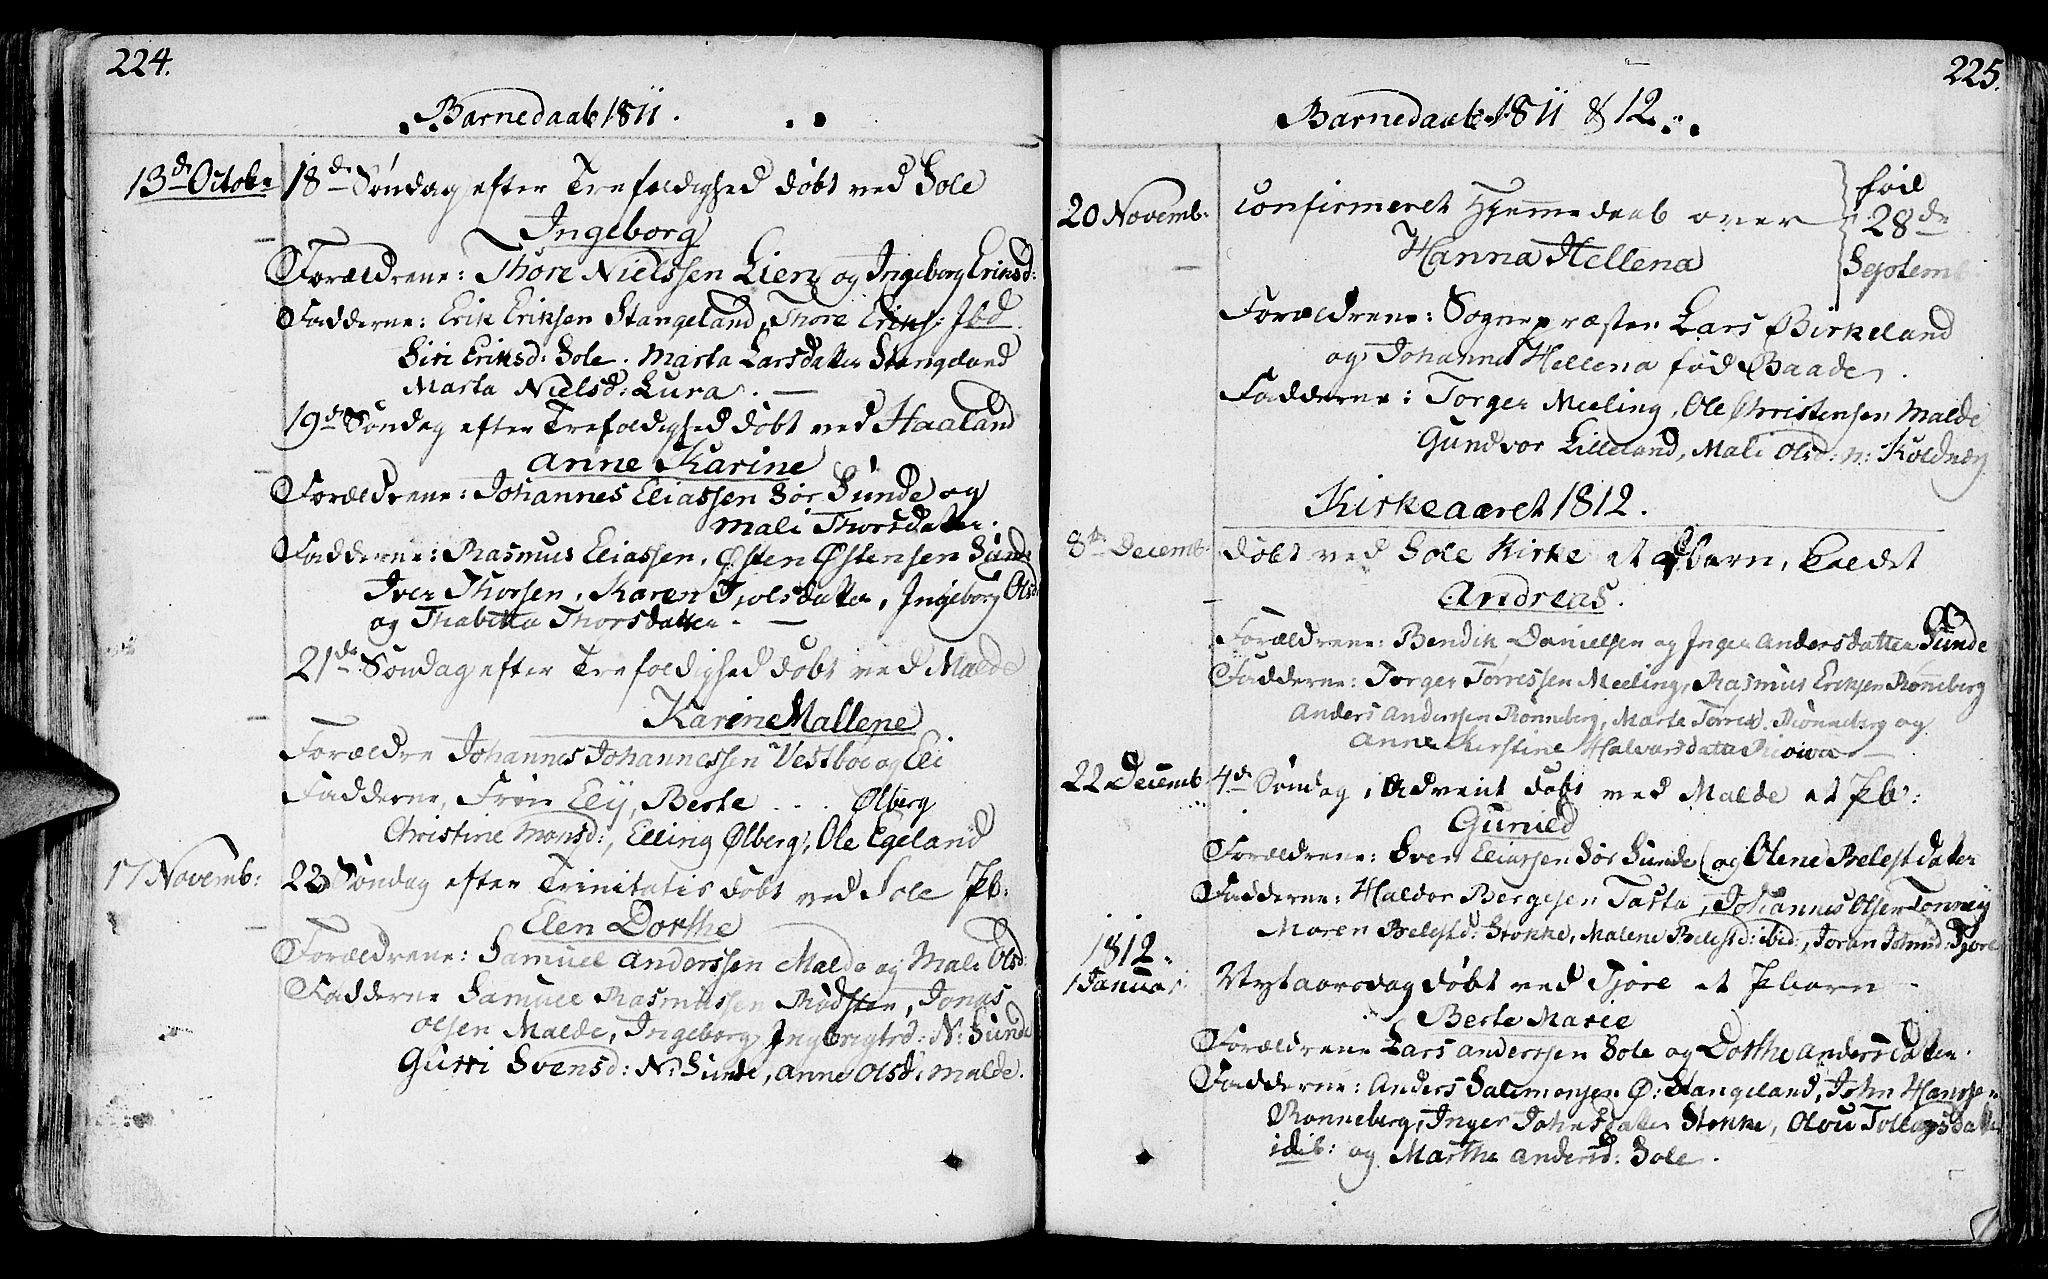 224.
Barnedaab 1811.
13de Octobr 18de Søndag efter Trefoldighed døbt ved Sole
Ingeborg
Forældrene: Thore Nielssen Lien og Ingeborg Eriksd:
Fadderne: Erik Eriksen Stangeland, Thore Eriks: Ibd.
Siri Eriksd: Sole. Marta Larsdatter Stangeland
Marta Nielsd: Lura. —
19de Søndag efter Trefoldighed døbt ved Haaland
Anne Karine
Forældrene: Johannes Eliassen Sør Sunde og
Mali Thorsdatter.
Fadderne: Rasmus Eliassen, Østen Østensen Sunde
Iver Thorsen, Karen Tjolsdatter, Ingeborg Olsd
og Thabitta Thorsdatter. —
21de Søndag efter Trefoldighed døbt ved Malde
Karine Mallene
Forældre Johannes Johannessen Vestboe og Eli
Fadderne, Ely, Berte . . . Ølberg
Christine Monsd:, Elling Ølberg, Ole Egeland
17 Novemb: 22 Søndag efter Trinitatis døbt ved Sole Pb:
Elen Dorthe
Forældrene: Samuel Anderssen Malde og Mali Olsd:
Fadderne Samuel Rasmussen Rødsten, Jonas
Olsen Malde, Ingeborg Ingbrigtsd: N: Sunde
Guri Svensd: N: Sunde, Anne Olsd: Malde.
225.
Barnedaab 1811 & 12.
20 Novemb: Confirmeret Hjemmedaab over
Hanna Hellena
fød
28de
Septemb:
Forældrene: Sognepræsten Lars Birkeland
og Johanna Hellena fød Baade.
Fadderne: Torger Meeling, Ole Christensen Malde
Gundvor Lilleland, Mali Olsd: n: Koldnæs
Kirkeaaret 1812.
8de Decemb: døbt ved Sole Kirke et barn, kaldet
Andreas.
Forældrene: Bendik Danielsen og Inger Andersdatter Sunde
Fadderne: Torger Torressen Meeling, Rasmus Eriksen Rønneberg
Anders Anderssen Rønneberg, Marta Torresd. Rønneberg og
Anne Kirstine Halvarsdatter
22 Decemb 4de Søndag i Advent døbt ved Malde et Pb:
Gunild
Forældrene: Sven Eliassen Sør Sunde (og Olene) Pelestdatter
Fadderne: Haldor Bergesen Tasta, Johannes Olsen Tonnes
Maren Pelestd: Stokke, Malene Pelestd: ibid:, Joran Johnsd: Tjore
1812.
1 Januar: Nytaarsdag døbt ved Tjøre et Pbarn
Berte Marie
Forældrene Lars Anderssen Sole og Dorthe Andersdatter.
Fadderne: Anders Salemonsen Ø: Stangeland, John Hansen
Rønneberg, Inger Johnsdatter Stokke, Olou Tollagsdatter
idib: og Marthe Andersd: Sole.